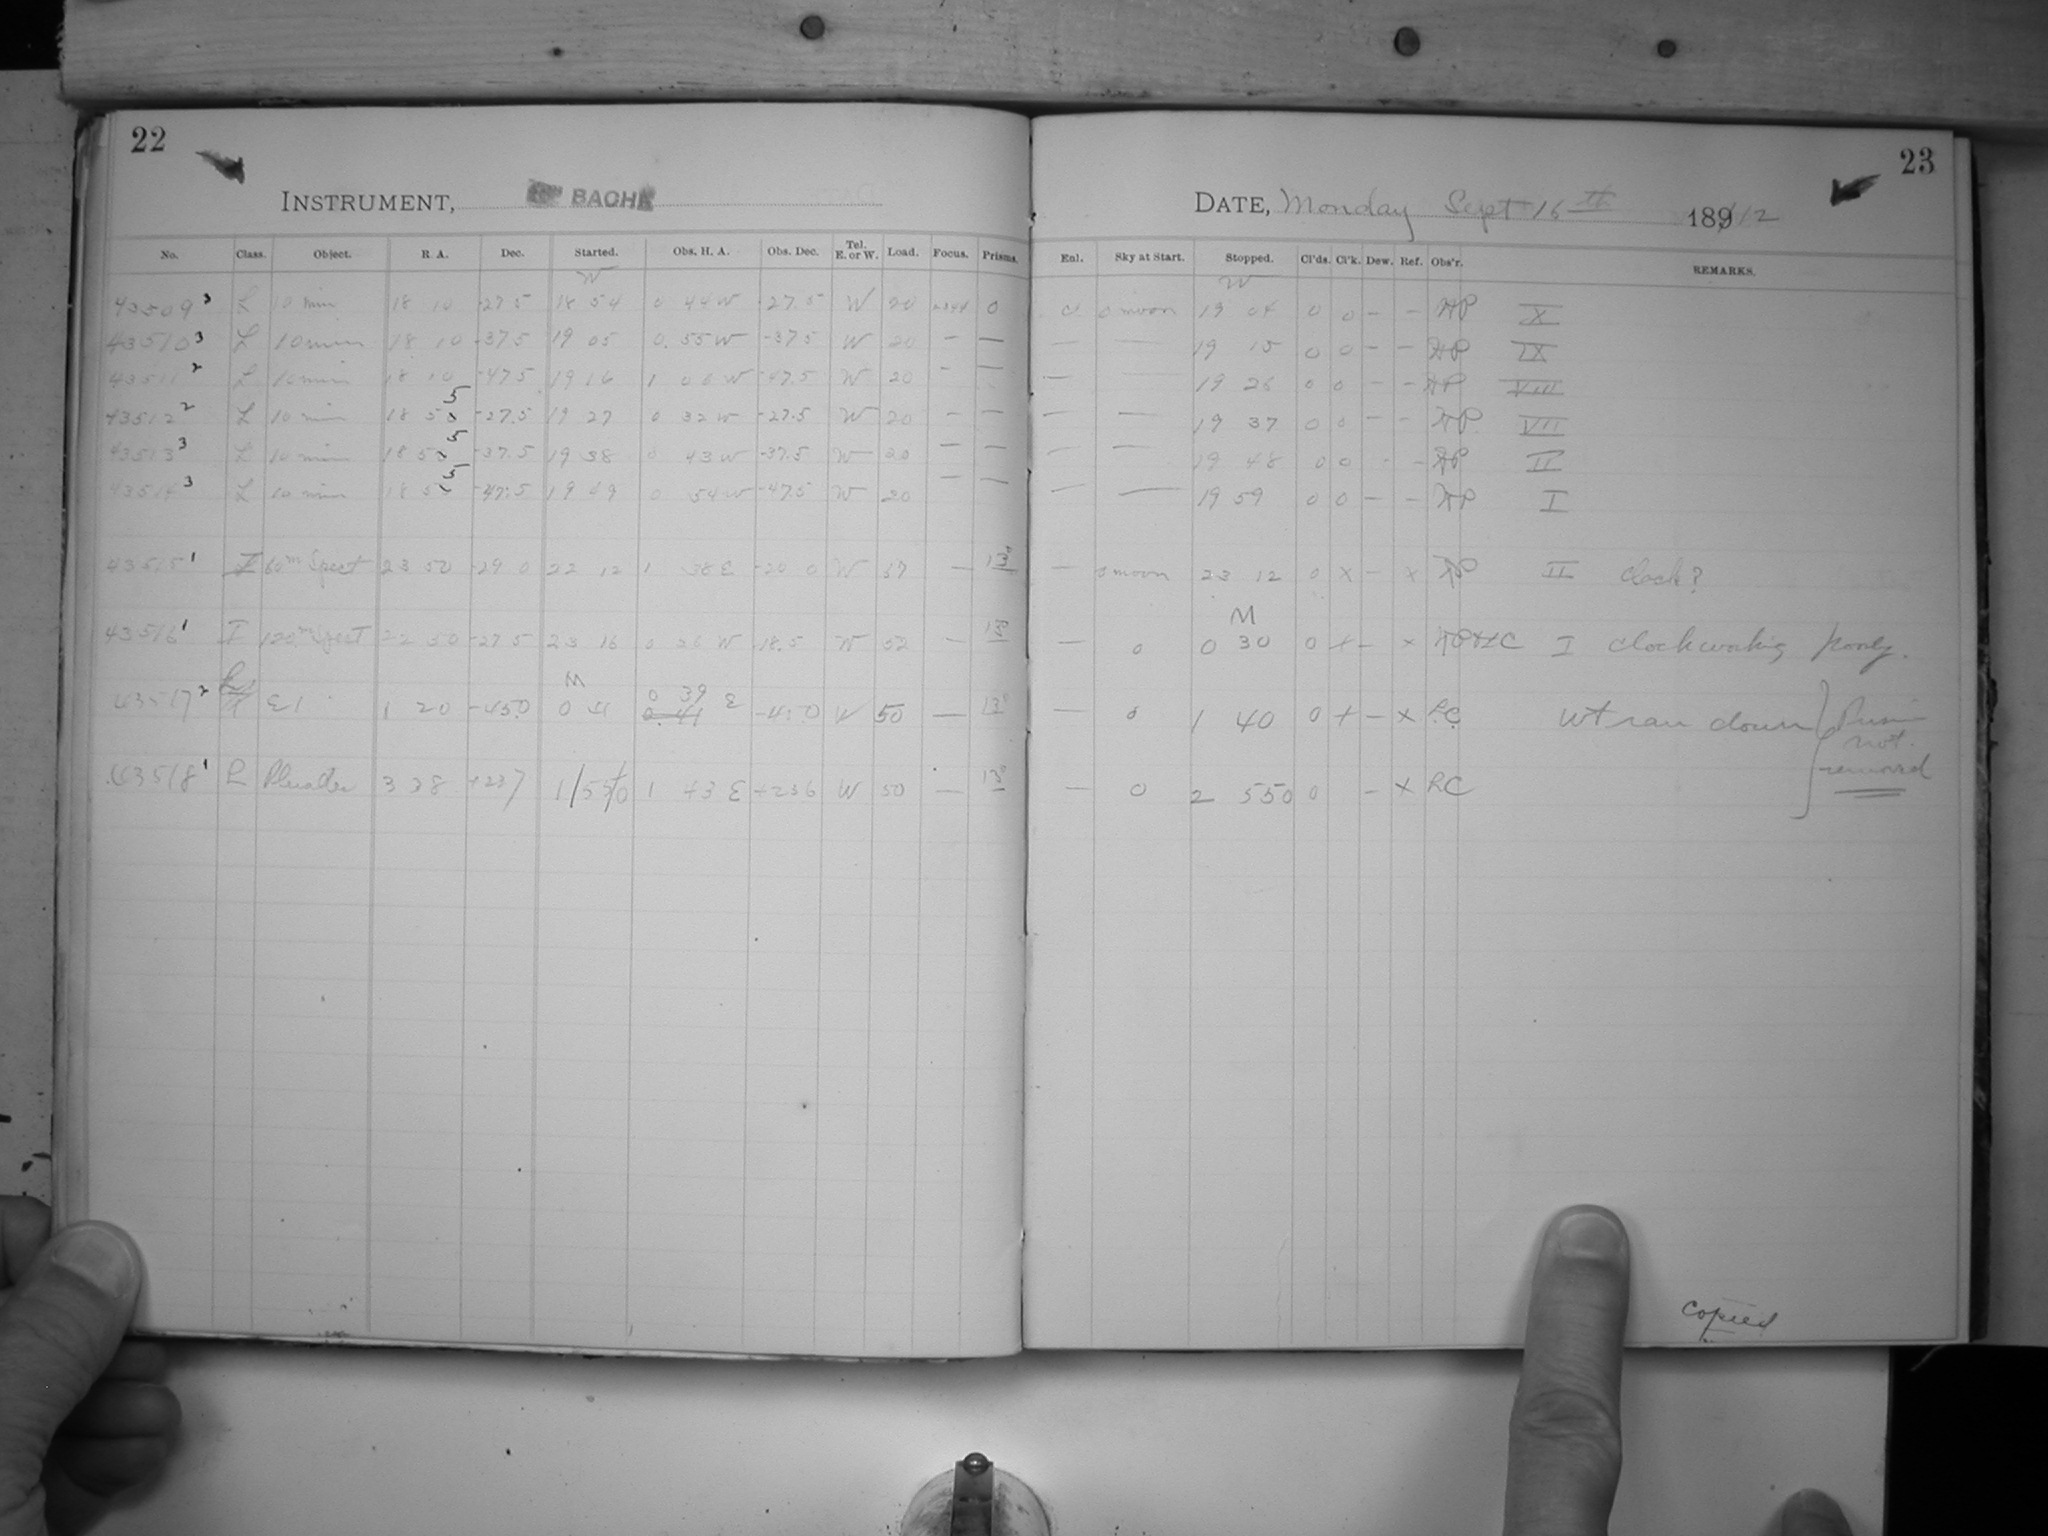 22
INSTRUMENT, BACHE
No. Class. Object. R. A. Dec. Started. Obs. H. A. Obs. Dec. Tel. E. or W. Load. Focus. Prisms.
W
43509 3 L 10 min 18 10 -27.5 18 54 0 44 W -27.5 W 20 0
43510 3 L 10 min 18 10 -37.5 19 05 0. 55 W -37.5 W 20 — —
43511 2 L 10 min 18 10 -47.5 19 16 1 06 W -47.5 W 20 - —
43512 2 L 10 min 18 5 -27.5 19 27 0 32 W -27.5 W 20 — —
43513 3 L 10 min 18 5 -37.5 19 38 0 43 W -37.5 W 20 — —
43514 3 L 10 min 18 5 -47.5 19 49 0 54 W -47.5 W 20 — —
43515 1 I 60m Spect 23 50 22 12 1 38 E W — 13°
43516 1 I 120m Spect 22 50 -27 5 23 16 0 26 W W 52 — 13°
M
43517 2 E 1 1 20 -45.0 0 0 39 E W 50 — 13°
0.41
43518 1 L 3 38 +237 1 1 43 E +236 W 50 — 13°
23
DATE, Monday Sept 16th 1912
Enl. Sky at Start. Stopped. Cl'ds. Cl'k. Dew. Ref. Obs'r. REMARKS.
W
0 0 moon 19 04 0 0 - - HP X
— — 19 15 0 0 - - HP IX
— — 19 26 0 0 - - HP VIII
— — 19 37 0 0 - - HP VII
— — 19 48 0 0 - - HP II
— — 19 59 0 0 - - HP I
— 0 moon 23 12 0 x - x HP II clock?
M
— 0 0 30 0 + - x HP + LC I clock working poorly.
— 0 1 40 0 + - x LC wt ran down Prism
not
removed
— 0 2 550 0 - x LC
copied